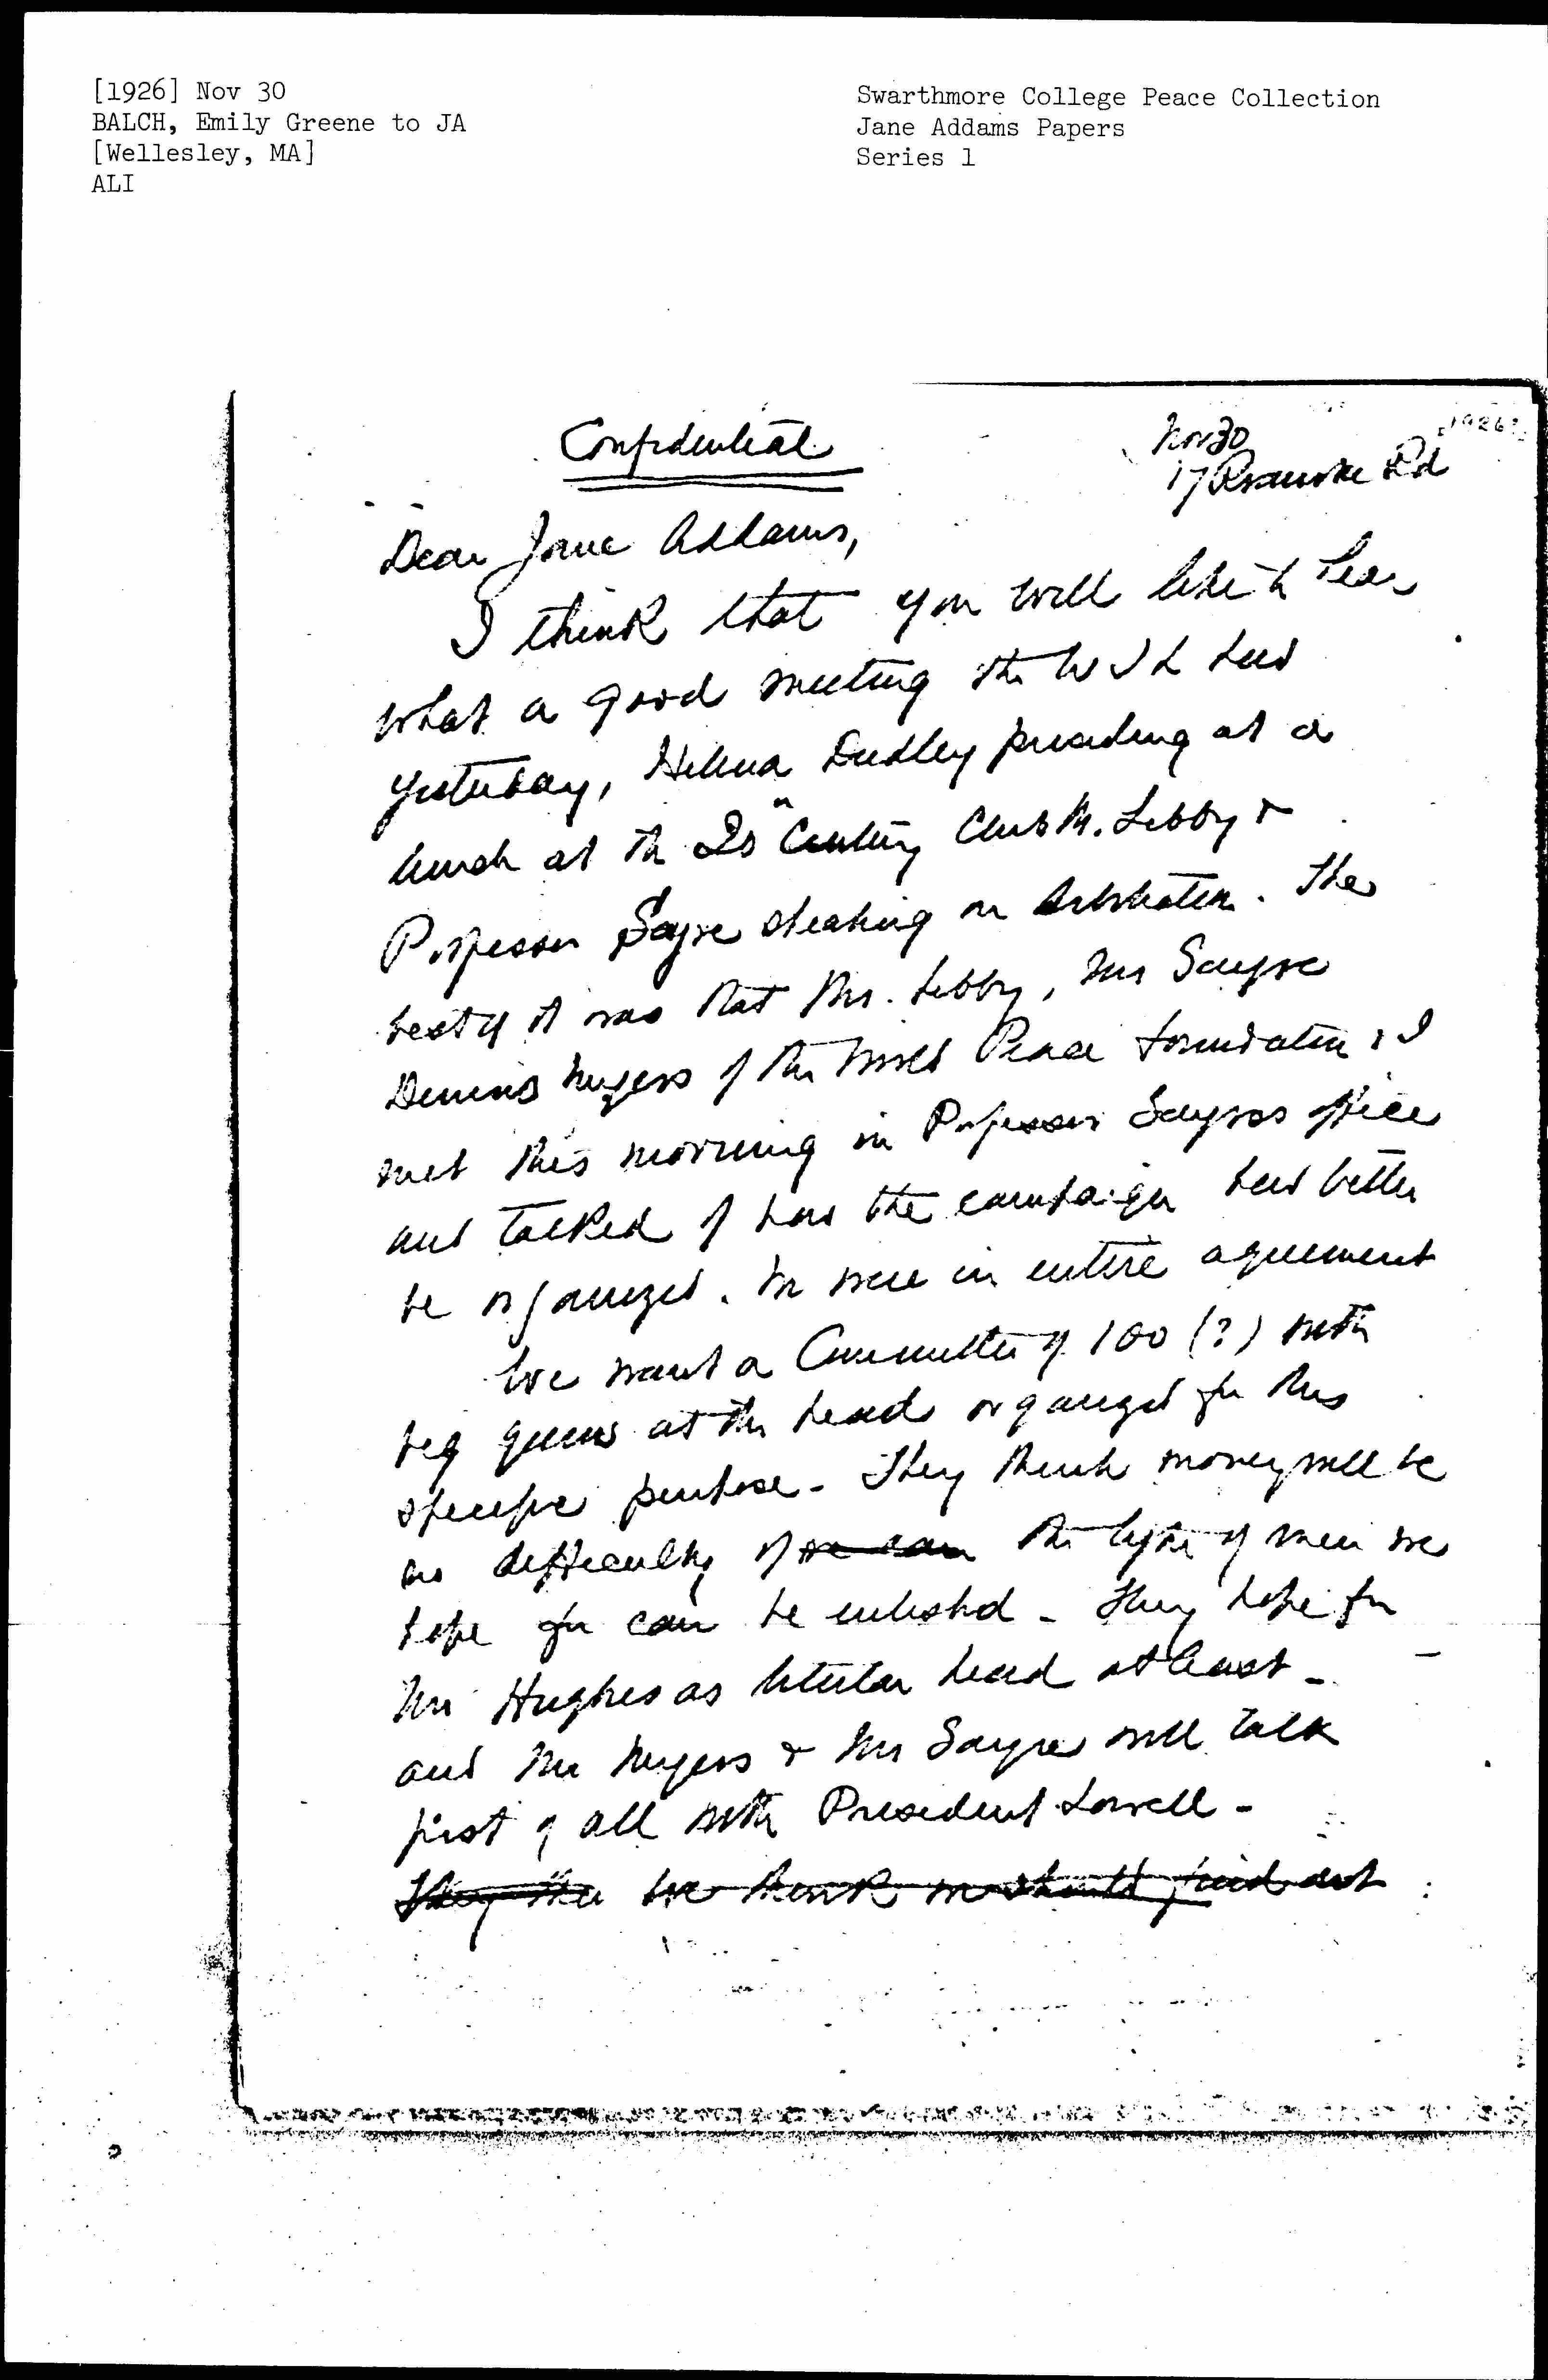 [1926] Nov 30
BALCH, Emily Greene to JA
[Wellesley, MA]
ALI
Swarthmore College Peace Collection
Jane Addams Papers
Series 1
Confidential
Nov 30
[1926?]
17 Roanoke Rd
Dear Jane Addams,
I think that you will like to hear
what a good meeting the W I L had
yesterday, Helena Dudley presiding at a
lunch at the 20th Century Club Mr. Libby &
Professor Sayre speaking on Arbitration. The
best of it was that Mr. Libby, Mr Sayre
Denys Myers of the World Peace Foundation & I
met this morning in Professor Sayres office
and talked of how the campaign had better
be organized. We were in entire agreement
We want a Committee of 100 (?) with
big guns at the head organized for this
specific purpose - They think money will be
no difficulty if we can the type of men we
hope for can be enlisted - They hope for
Mr Hughes as titular head at least -
and Mr Myers & Mr Sayre will talk
first of all with President Lowell -
They the We think we should find out